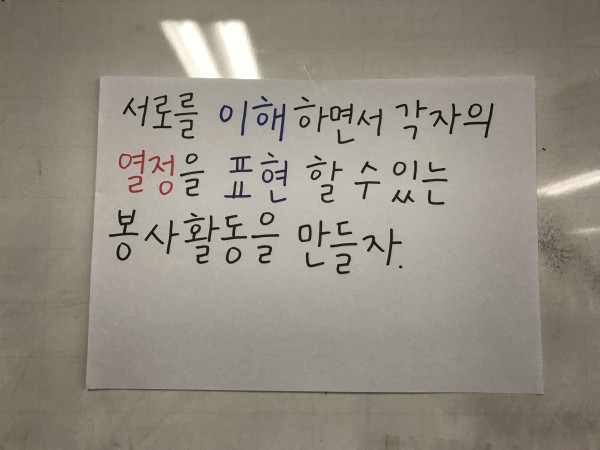 서로를 이해하면서 각자의
열정을 표현 할 수 있는
봉사활동을 만들자.